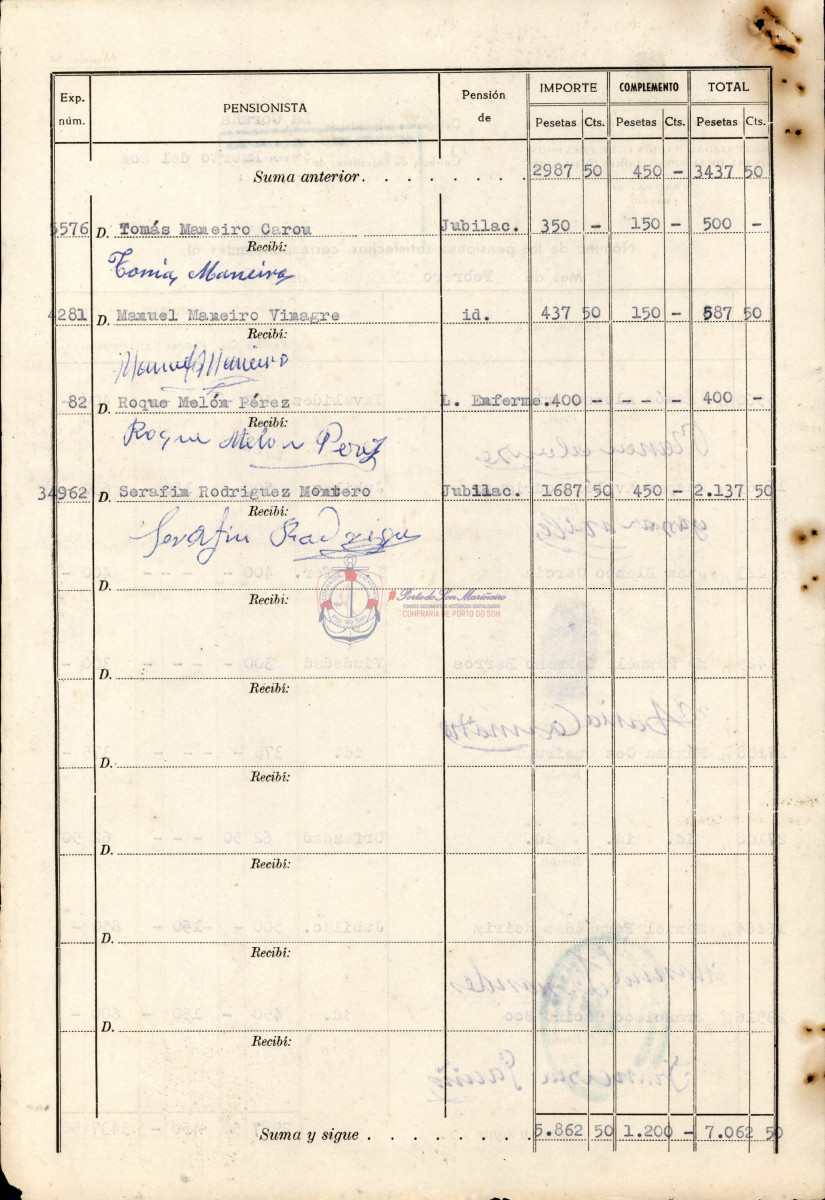 Exp. núm. PENSIONISTA Pensión de IMPORTE COMPLEMENTO TOTAL
Pesetas Cts. Pesetas Cts. Pesetas Cts.
Suma anterior . . . . . . . . 2987 50 450 - 3437 50
5576 D. Tomás Maneiro Carou Jubilac. 350 - 150 - 500 -
Recibí:
Tomas Maneiro
4281 D. Manuel Maneiro Vinagre id. 437 50 150 - 587 50
Recibí:
Manuel Maneiro
82 D. Roque Melón Pérez L. Enferme. 400 - - - - 400 -
Recibí:
Roque Melon Perez
34962 D. Serafin Rodriguez Montero Jubilac. 1687 50 450 - 2.137 50
Recibí:
Serafin Rodrigu
D.
Recibí:
#PortodoSonMariñeiro
FONDOS DOCUMENTAIS HISTÓRICOS DIXITALIZADOS
CONFRARÍA DE PORTO DO SON
D.
Recibí:
D.
Recibí:
D.
Recibí:
D.
Recibí:
D.
Recibí:
Suma y sigue . . . . . . . . 5.862 50 1.200 - 7.062 50